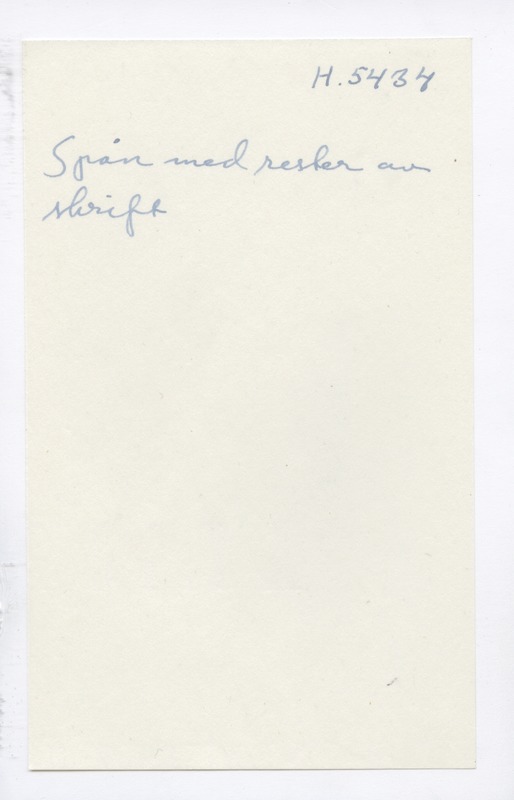 H.5434
Spån med rester av
skrift